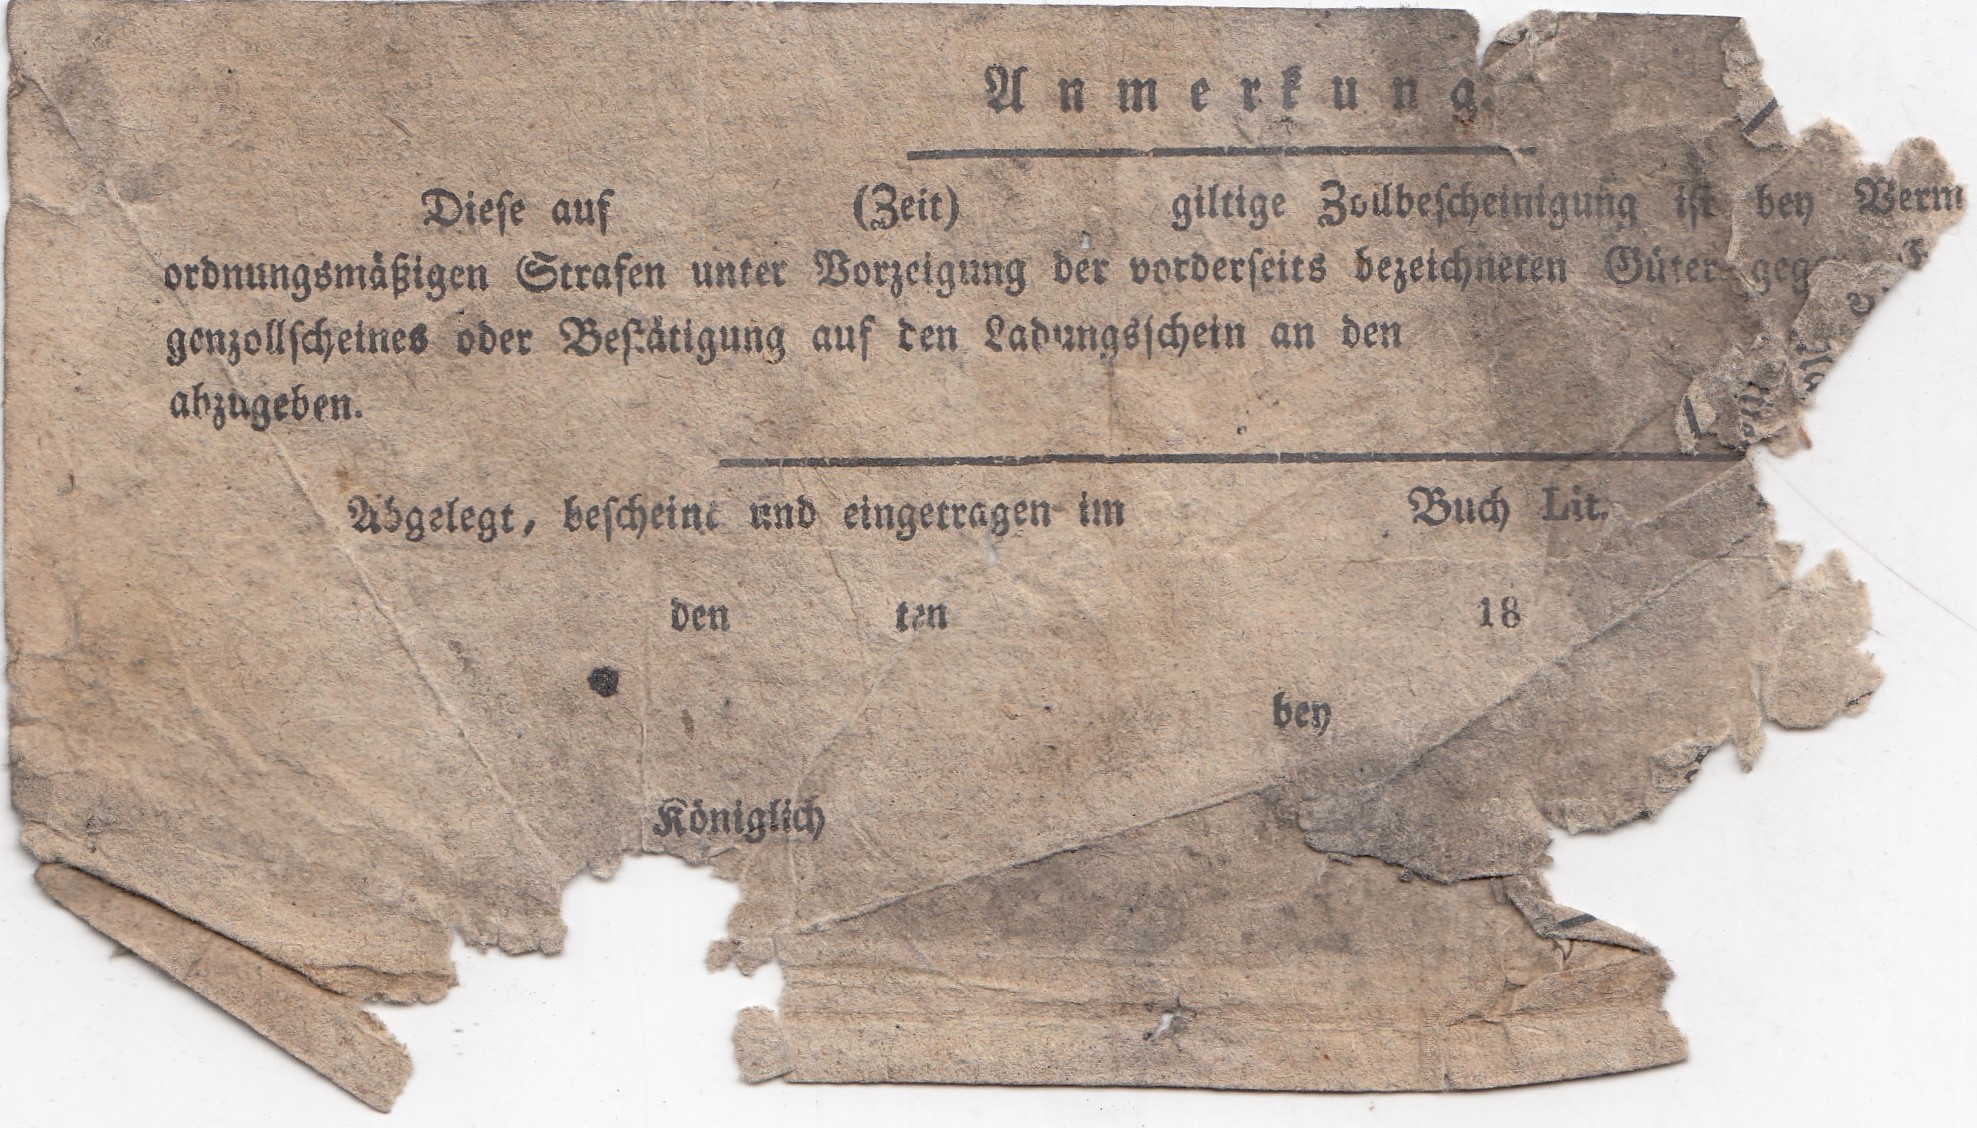 Anmerkung.
Diese auf (Zeit) giltige Zollbescheinigung ist bey Verm
ordnungsmäßigen Strafen unter Vorzeigung der vorderseits bezeichneten Güter gege
genzollscheines oder Bestätigung auf den Ladungsschein an den
abzugeben.
Abgelegt, bescheint und eingetragen im Buch Lit.
den ten 18
bey
Königlich